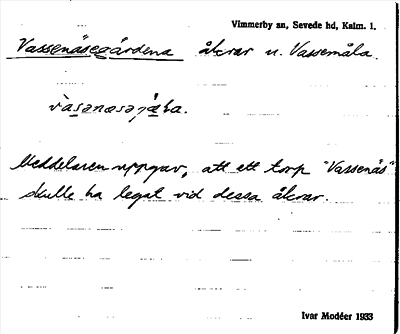 Vimmerby sn, Sevede hd, Kalm. l.
Vassenäsegärdena åkrar u. Vassemåla.
Meddelaren uppgav, att ett torp "Vassenäs"
skulle ha legat vid dessa åkrar.
Ivar Modéer 1933